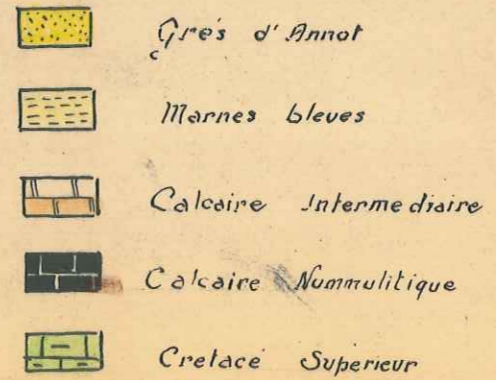 Grés d'Annot
Marnes bleues
Calcaire Intermediaire
Calcaire Nummulitique
Cretacé Superieur